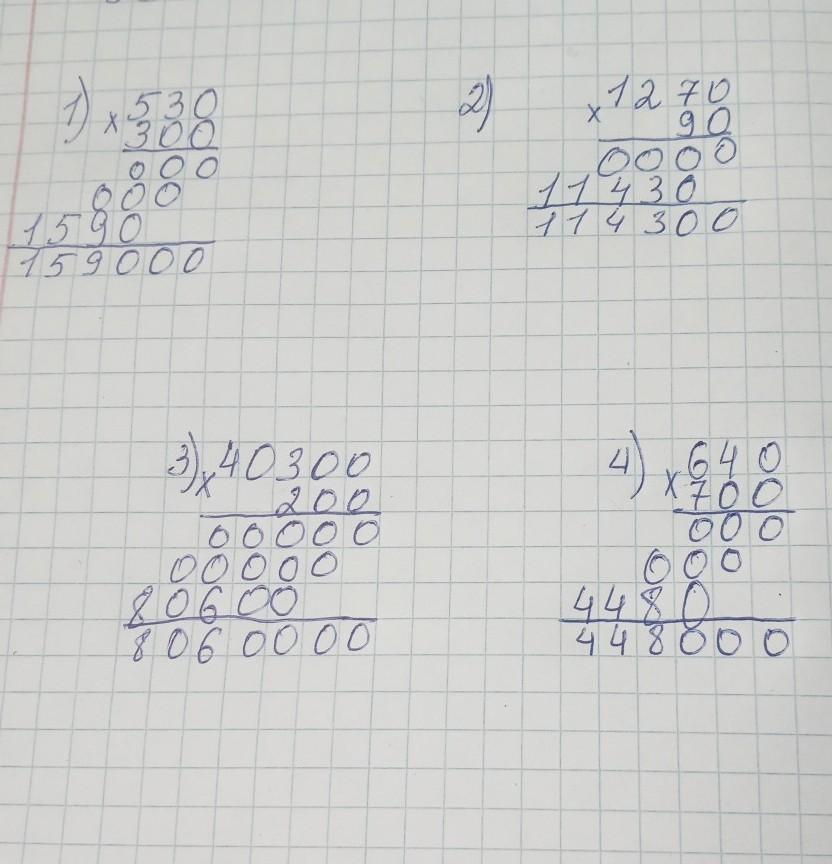 1) × 530
300
000
000
1590
159000
2) × 1270
90
0000
11430
114300
3) × 40300
200
00000
00000
80600
8060000
4) × 640
700
000
000
4480
448000